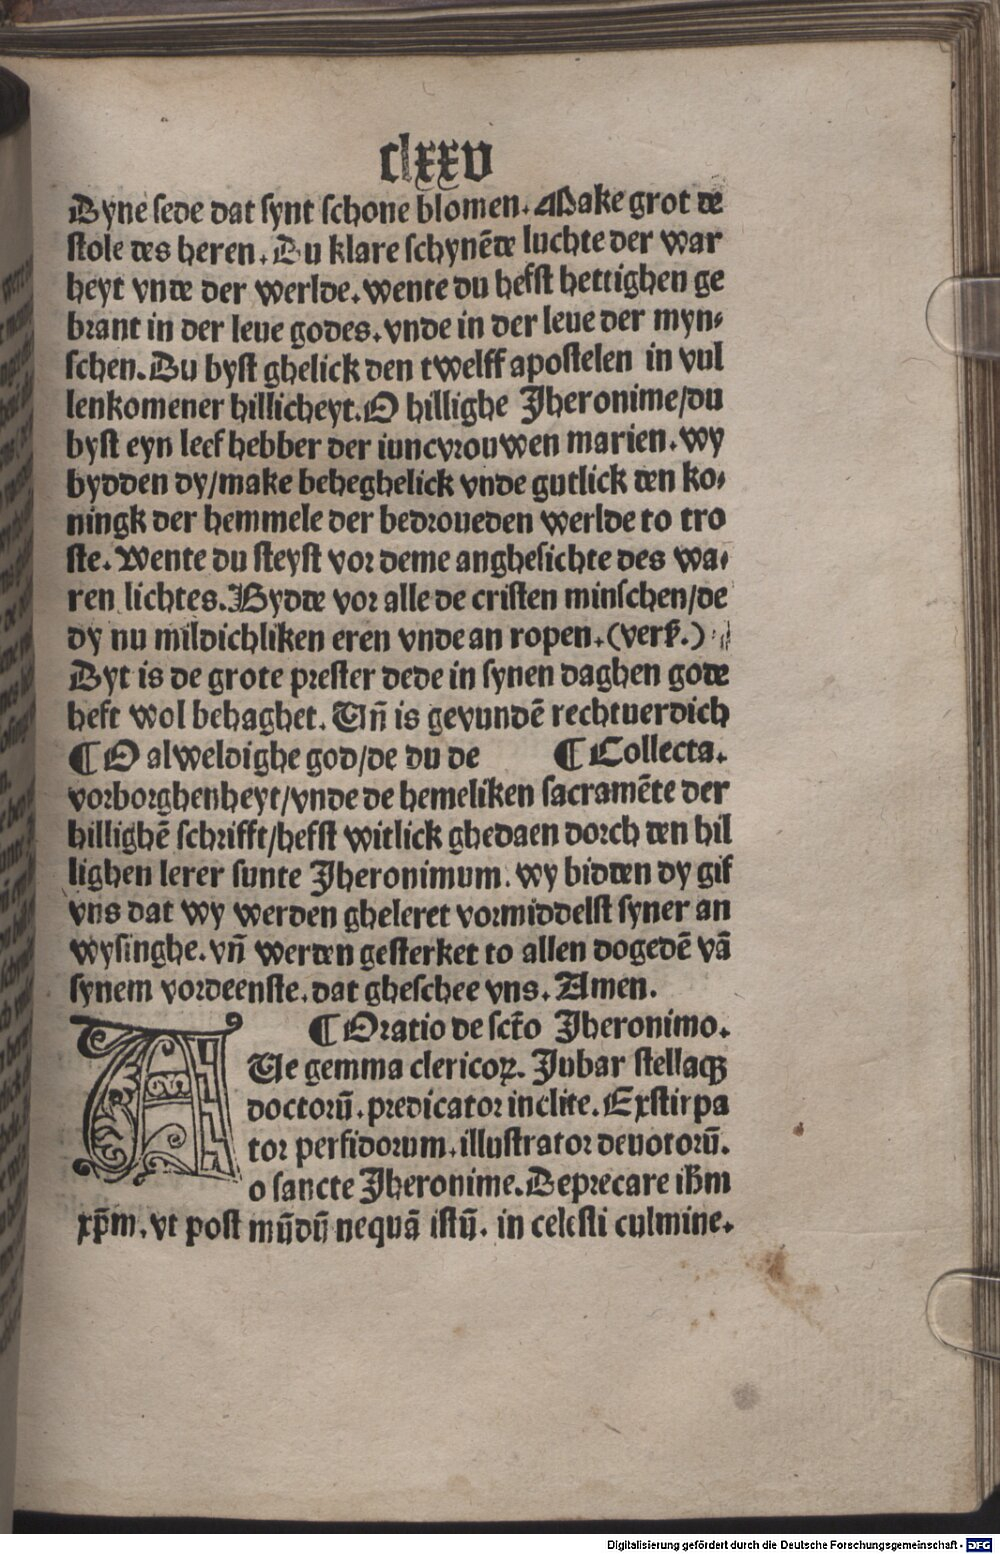 clxxv
Dyne sede dat synt schone blomen. Make grot de
stole des heren. Du klare schynēde luchte der war
heyt vnde der werlde. wente du hefst hettighen ge
brant in der leue godes. vnde in der leue der myn⸗
schen. Du byst ghelick den twelff apostelen in vul
lenkomener hillicheyt. O hillighe Jheronime/du
byst eyn leef hebber der iuncvrouwen marien. wy
bydden dy/make beheghelick vnde gutlick den ko⸗
ningk der hemmele der bedroueden werlde to tro
ste. Wente du steyst vor deme anghesichte des wa⸗
ren lichtes. Bydde vor alle de cristen minschen/de
dy nu mildichliken eren vnde an ropen. (vers.)
Dyt is de grote prester dede in synen daghen gode
heft wol behaghet. Vñ is gevundē rechtuerdich
¶ O alweldighe god/de du de ¶ Collecta.
vorborghenheyt/vnde de hemeliken sacramēte der
hillighē schrifft/hefst witlick ghedaen dorch den hil
lighen lerer sunte Jheronimum. wy bidden dy gif
vns dat wy werden gheleret vormiddelst syner an
wysinghe. vñ werden gesterket to allen dogedē vā
synem vordeenste. dat gheschee vns. Amen.
¶ Oratio de scto Jheronimo.
AUe gemma clericoꝝ. Jubar stellaqꝫ
doctorū. predicator inclite. Exstirpa
tor perfidorum. illustrator deuotorū.
o sancte Jheronime. Deprecare ihm
xp̄m. vt post mūdū nequā istū. in celesti culmine.
Digitalisierung gefördert durch die Deutsche Forschungsgemeinschaft - DFG